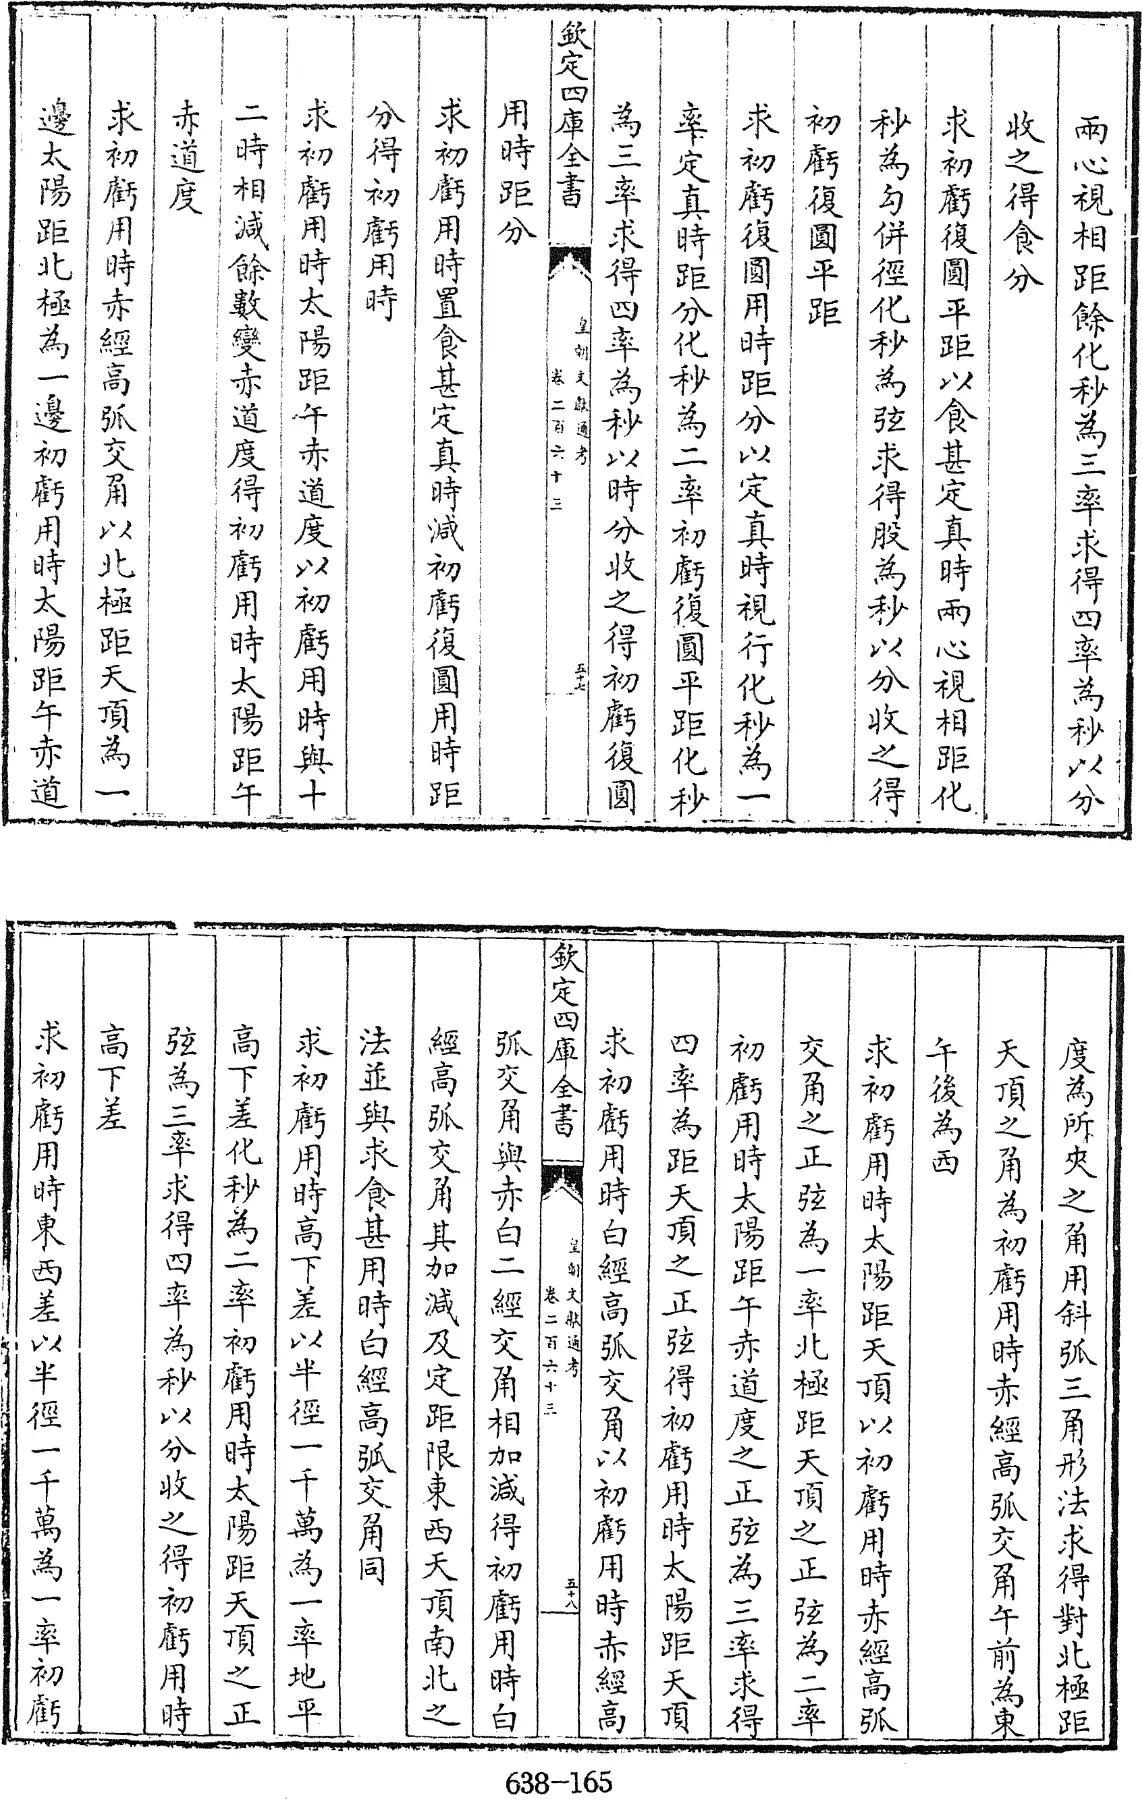 兩心視相距餘化秒為三率求得四率為秒以分
收之得食分
求初虧復圓平距以食甚定真時兩心視相距化
秒為勾併徑化秒為弦求得股為秒以分收之得
初虧復圓平距
求初虧復圓用時距分以定真時視行化秒為一
率定真時距分化秒為二率初虧復圓平距化秒
為三率求得四率為秒以時分收之得初虧復圓
欽定四庫全書
皇朝文獻通考
卷二百六十三
五十七
用時距分
求初虧用時置食甚定真時減初虧復圓用時距
分得初虧用時
求初虧用時太陽距午赤道度以初虧用時與十
二時相減餘數變赤道度得初虧用時太陽距午
赤道度
求初虧用時赤經高弧交角以北極距天頂為一
邊太陽距北極為一邊初虧用時太陽距午赤道
度為所夾之角用斜弧三角形法求得對北極距
天頂之角為初虧用時赤經高弧交角午前為東
午後為西
求初虧用時太陽距天頂以初虧用時赤經高弧
交角之正弦為一率北極距天頂之正弦為二率
初虧用時太陽距午赤道度之正弦為三率求得
四率為距天頂之正弦得初虧用時太陽距天頂
求初虧用時白經高弧交角以初虧用時赤經高
欽定四庫全書
皇朝文獻通考
卷二百六十三
五十八
弧交角與赤白二經交角相加減得初虧用時白
經高弧交角其加減及定距限東西天頂南北之
法並與求食甚用時白經高弧交角同
求初虧用時高下差以半徑一千萬為一率地平
高下差化秒為二率初虧用時太陽距天頂之正
弦為三率求得四率為秒以分收之得初虧用時
高下差
求初虧用時東西差以半徑一千萬為一率初虧
638-165